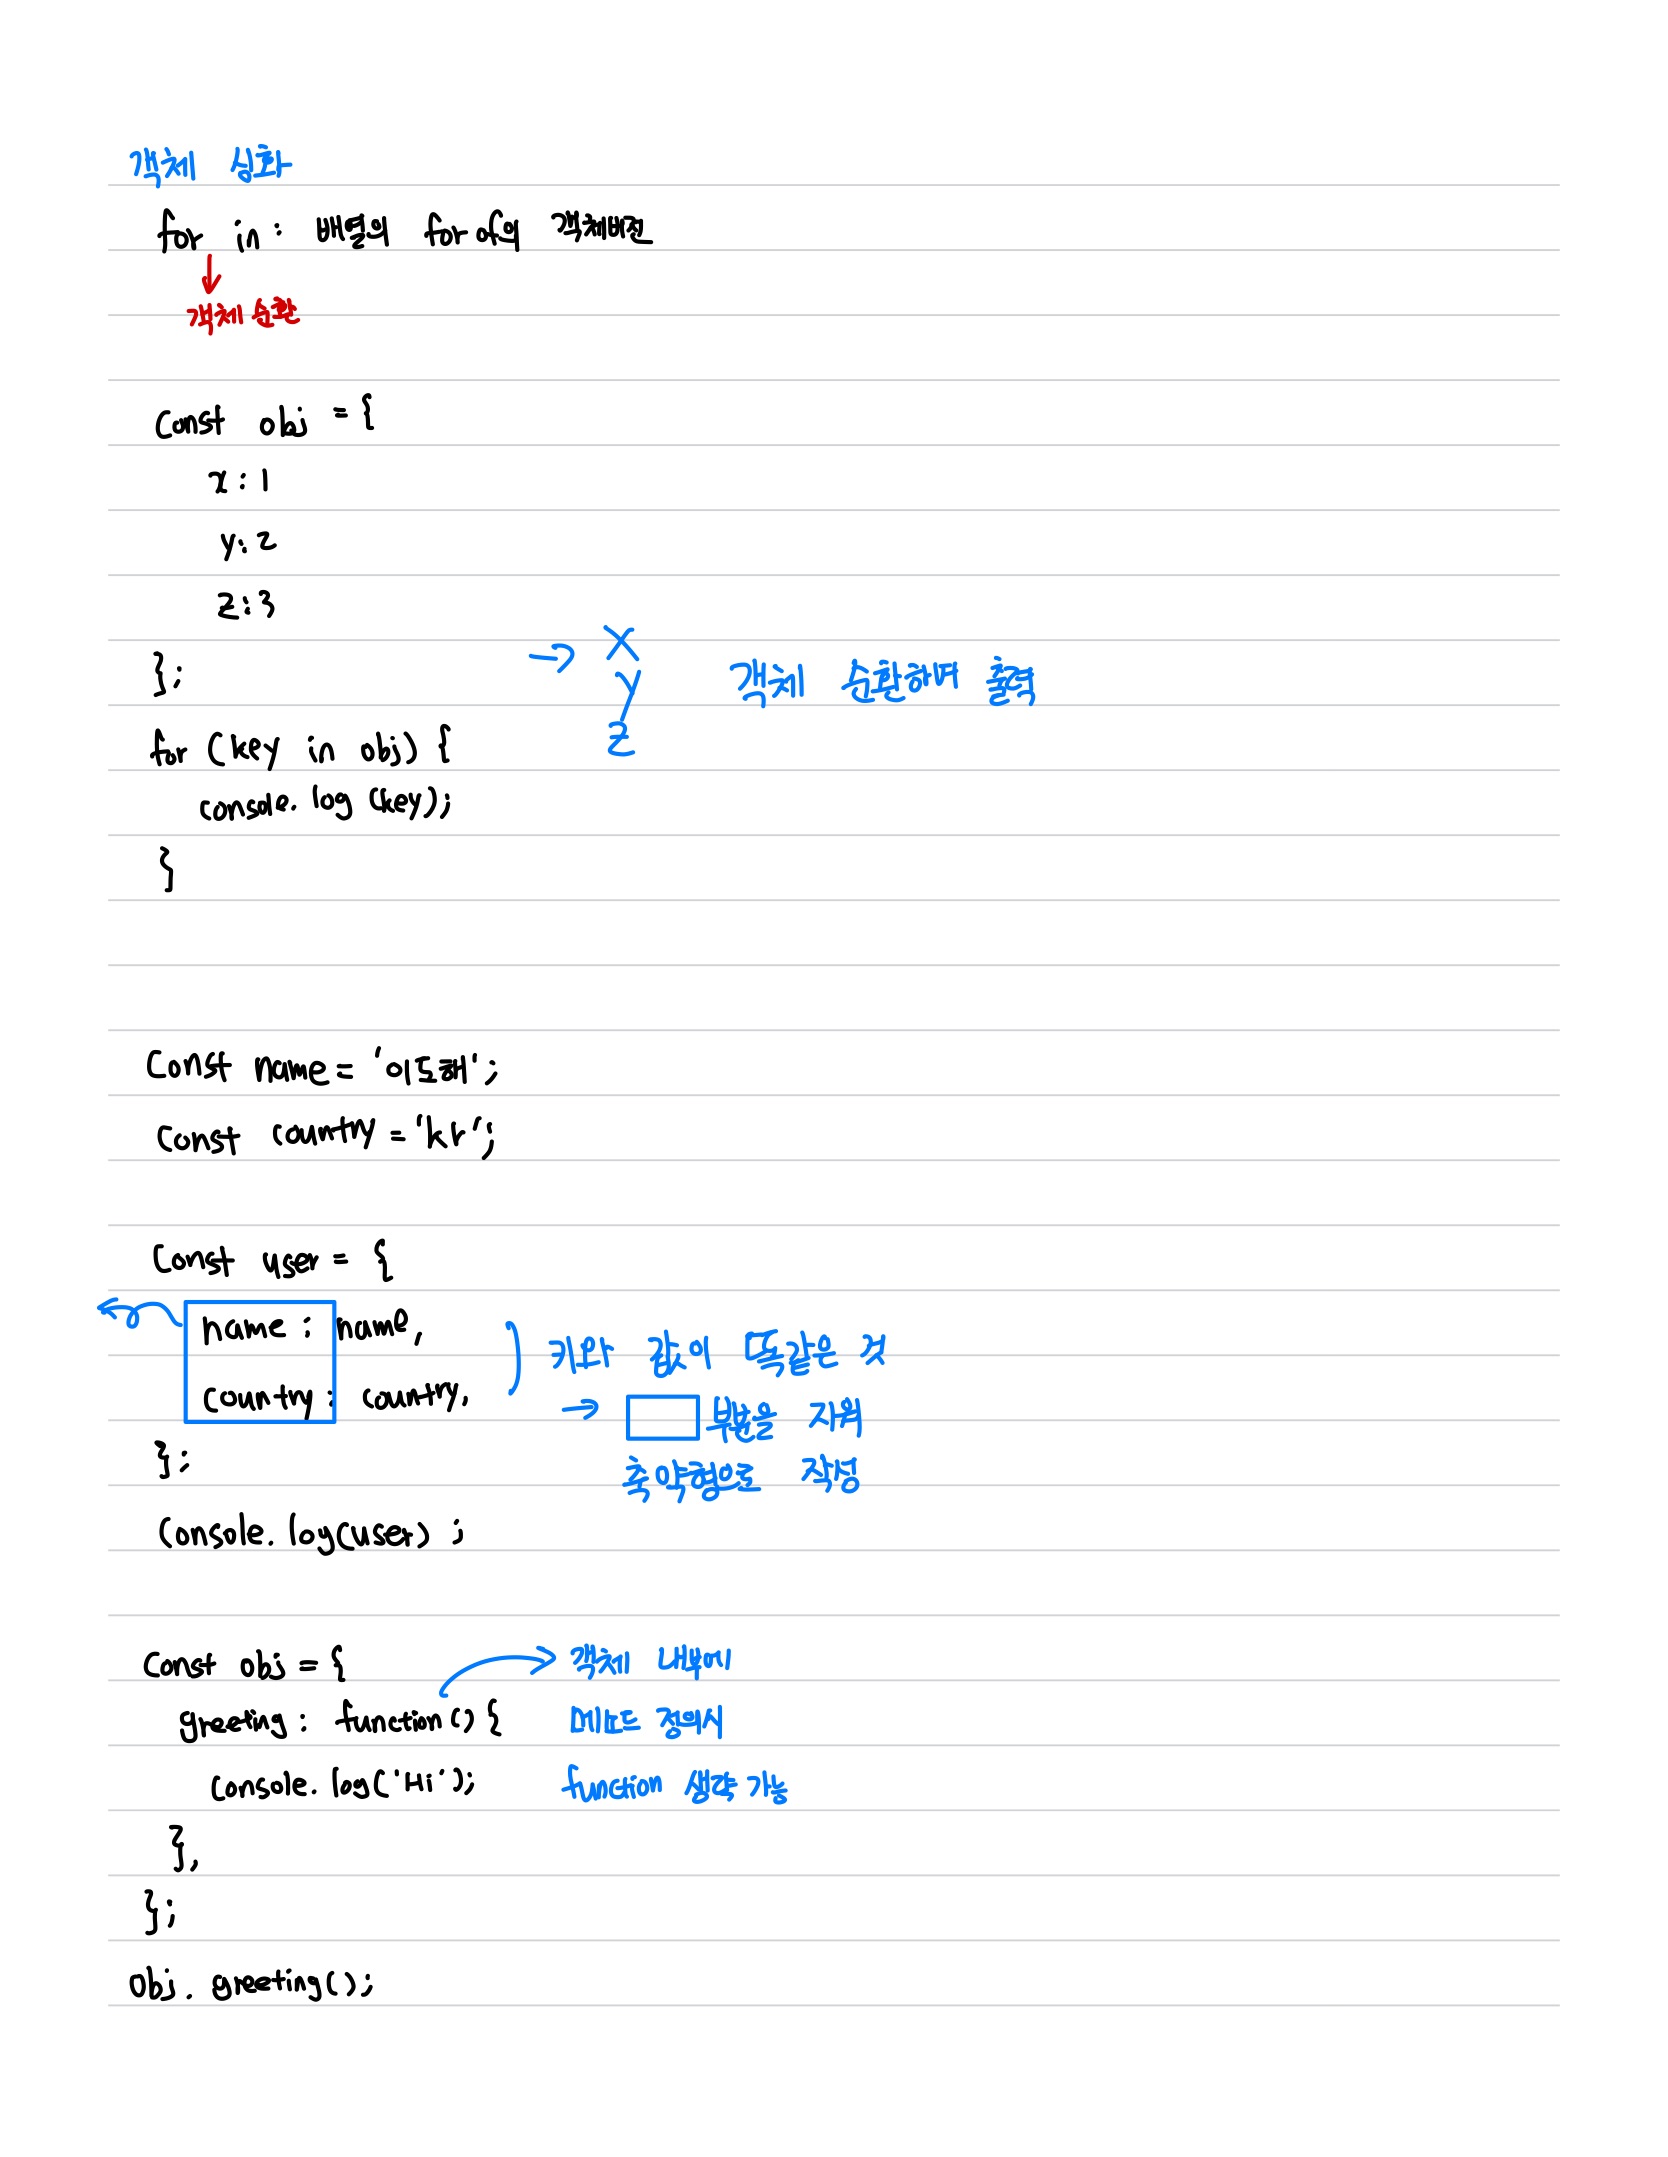 객체 심화
for in : 배열의 for of의 객체버전
객체 순환
Const obj = {
x : 1
y : 2
z : 3
};
→ X
y
z
객체 순환하며 출력
for (key in obj) {
console. log (key);
}
Const name = '이도해';
Const country = 'kr';
Const user = {
name : name,
country : country,
키와 값이 똑같은 것
→ 부분을 지워
축약형으로 작성
};
Console. log(user) ;
Const obj = {
greeting : function() {
console. log('Hi');
객체 내부에
메소드 정의시
function 생략 가능
},
};
obj. greeting();